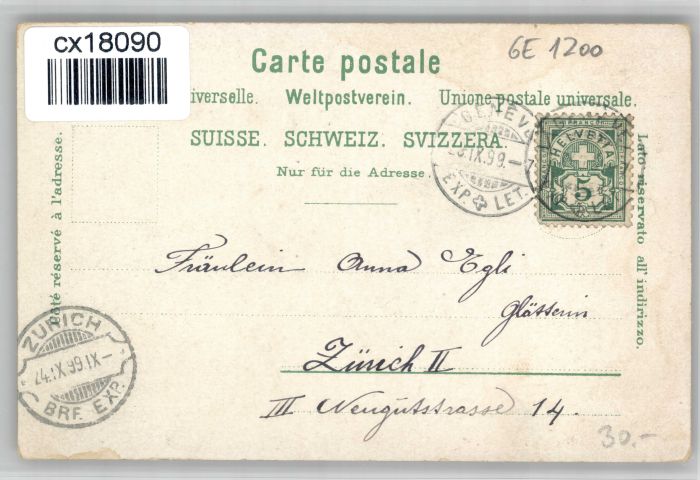 cx18090
GE 1200
Carte postale
iverselle. Weltpostverein. Unione postale universale.
SUISSE. SCHWEIZ. SVIZZERA.
Nur für die Adresse.
Côté réservé à l'adresse.
Lato riservato all' indirizzo.
GENÈVE
IX.99.-7
EXP. LET.
FRANCO
HELVETIA
5
Fräulein Anna Egli
Glätterin
Zürich II
III Neugutstrasse 14.
ZÜRICH
24.IX.99.IX-
BRF. EXP.
30.-